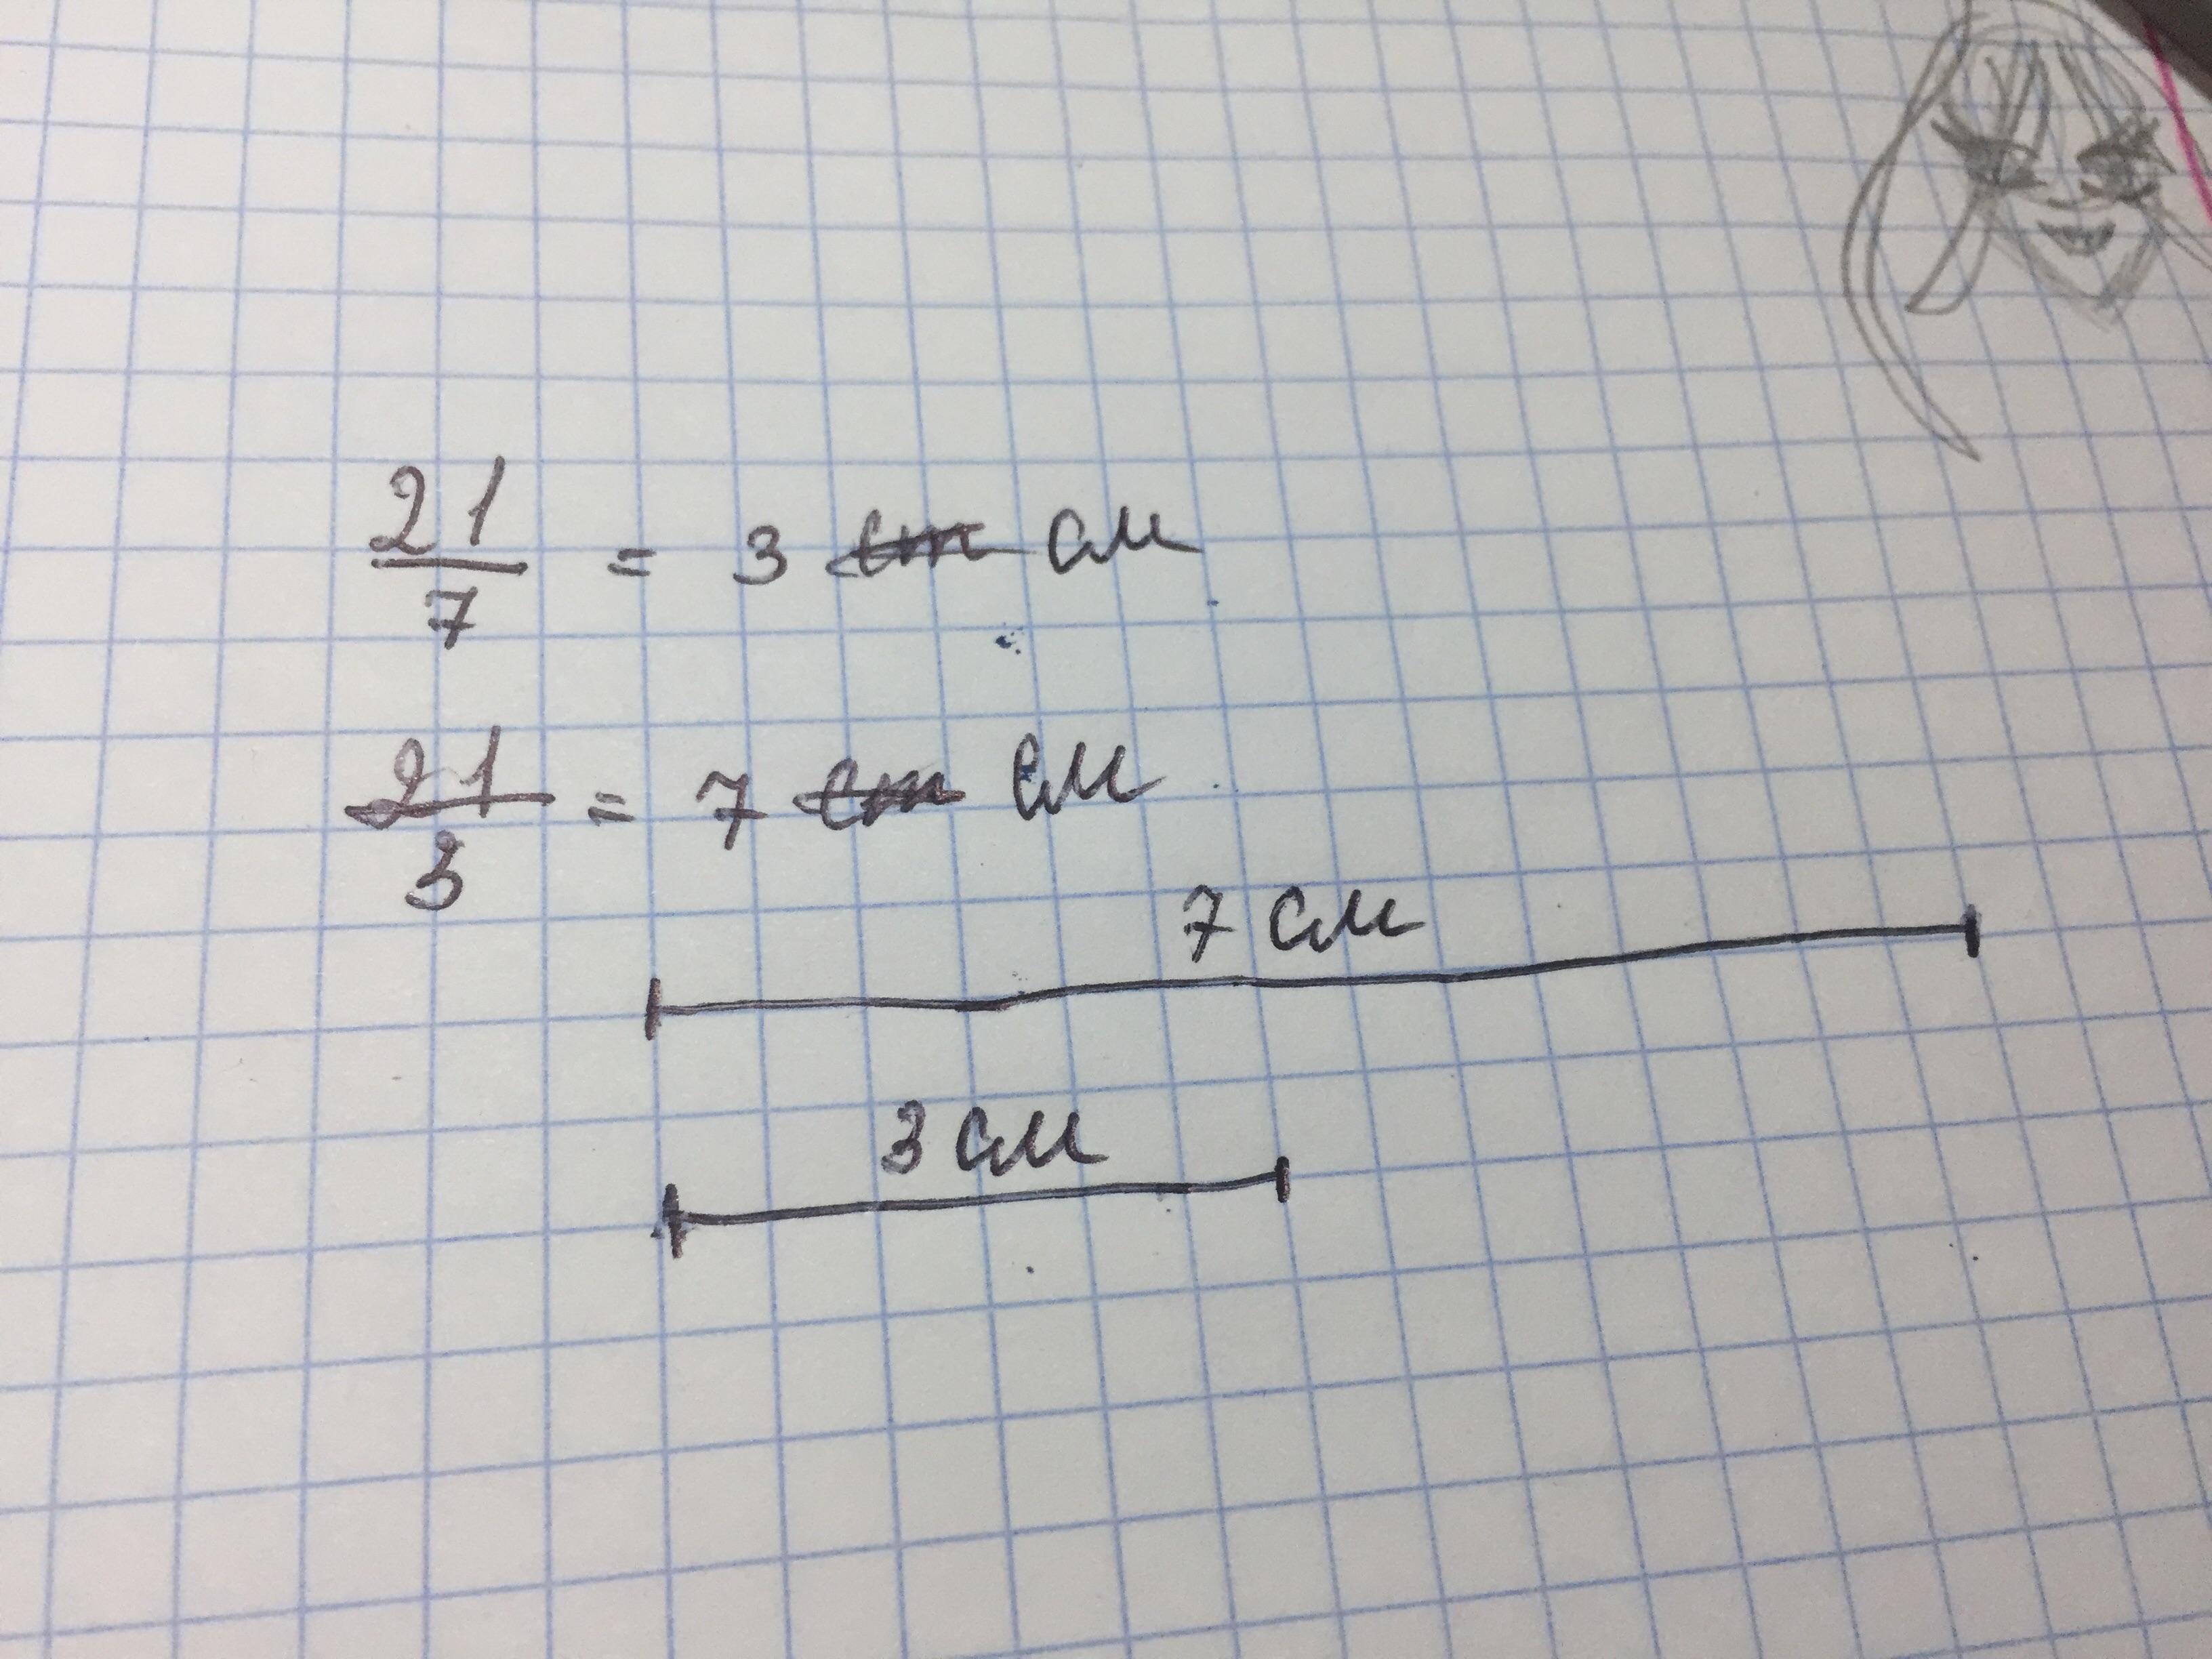 21/7 = 3 cm см
21/3 = 7 cm см
7 см
3 см